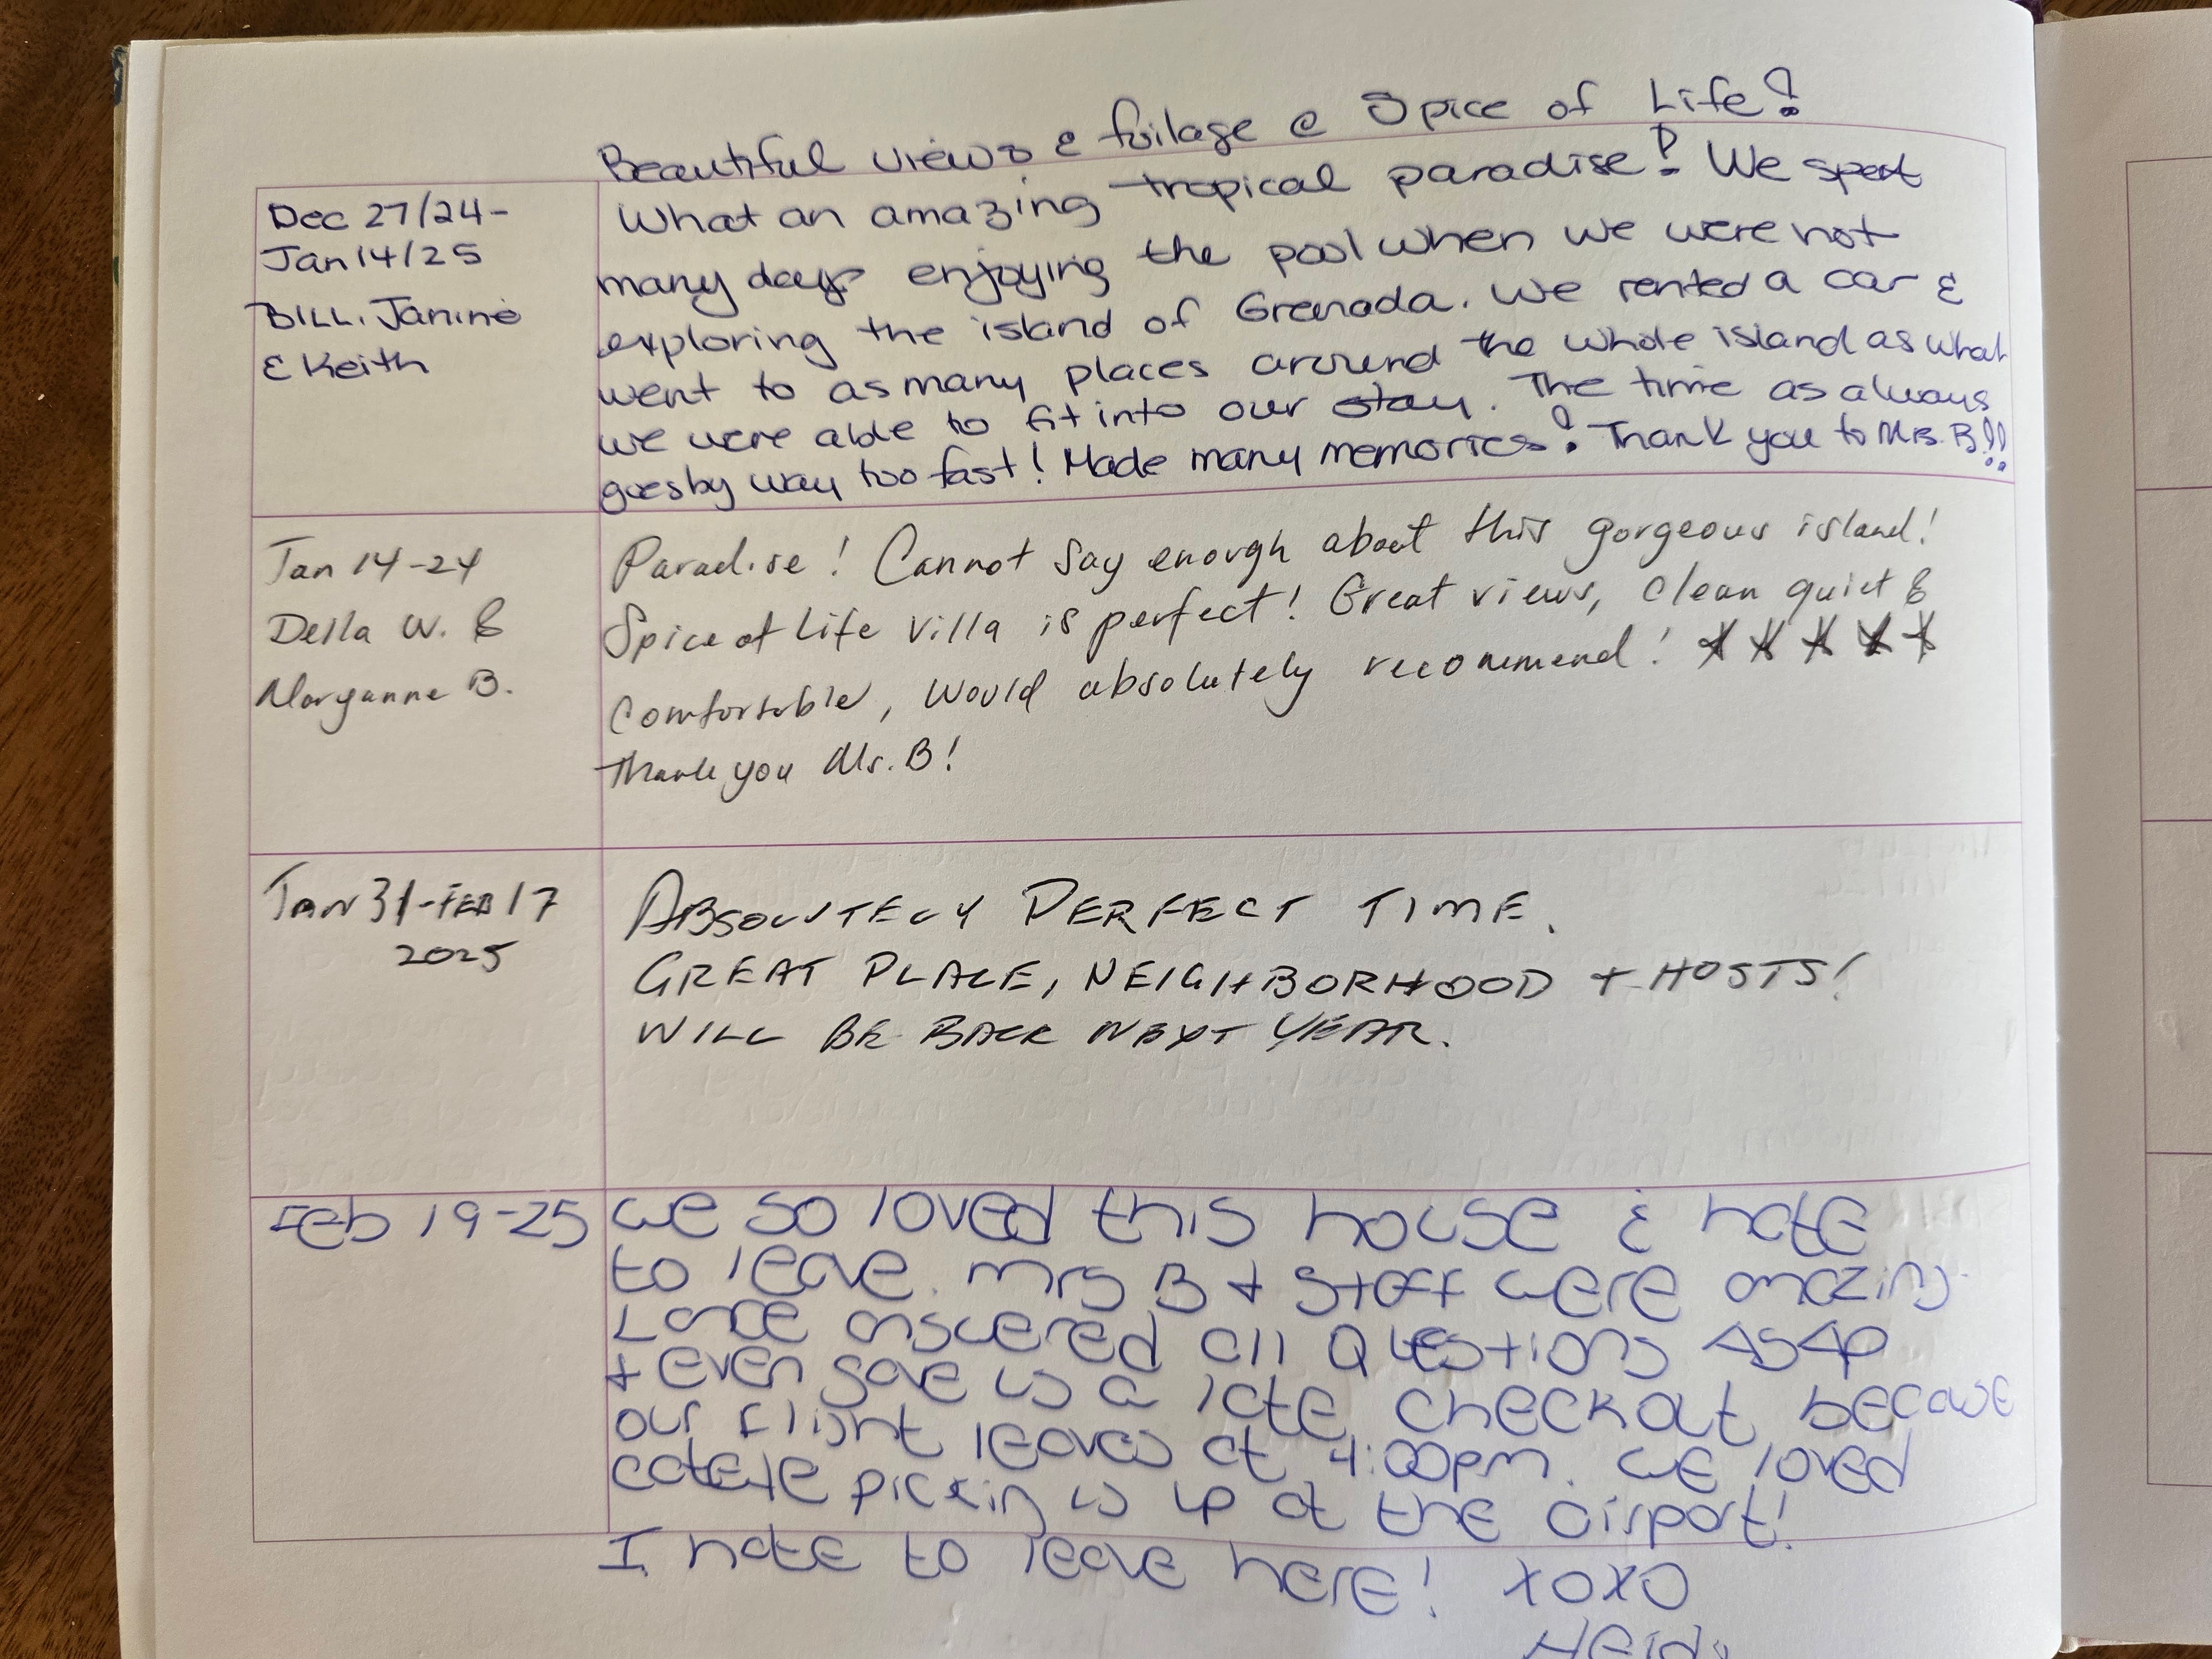 Beautiful views & foilage @ Spice of Life!
Dec 27/24-
Jan 14/25
BILL, Janine
& Keith
What an amazing tropical paradise! We spent
many days enjoying the pool when we were not
exploring the island of Grenada. We rented a car &
went to as many places around the whole island as what
we were able to fit into our stay. The time as always
goes by way too fast! Made many memories! Thank you to Mrs. B!!
Jan 14-24
Della W. &
Maryanne B.
Paradise! Cannot say enough about this gorgeous island!
Spice of Life Villa is perfect! Great views, clean quiet &
Comfortable, Would absolutely recommend! ★ ★ ★ ★ ★
Thank you Ms. B!
JAN 31-FEB 17
2025
ABSOLUTELY PERFECT TIME.
GREAT PLACE, NEIGHBORHOOD + HOSTS!
WILL BE BACK NEXT YEAR.
Feb 19-25
We so loved this house & hate
to leave. Mrs B + Staff were amazing.
Lance answered all Questions ASAP
+ even gave us a late checkout because
our flight leaves at 4:00pm. We loved
picking us up at the airport!
I hate to leave here! XOXO
Heidi